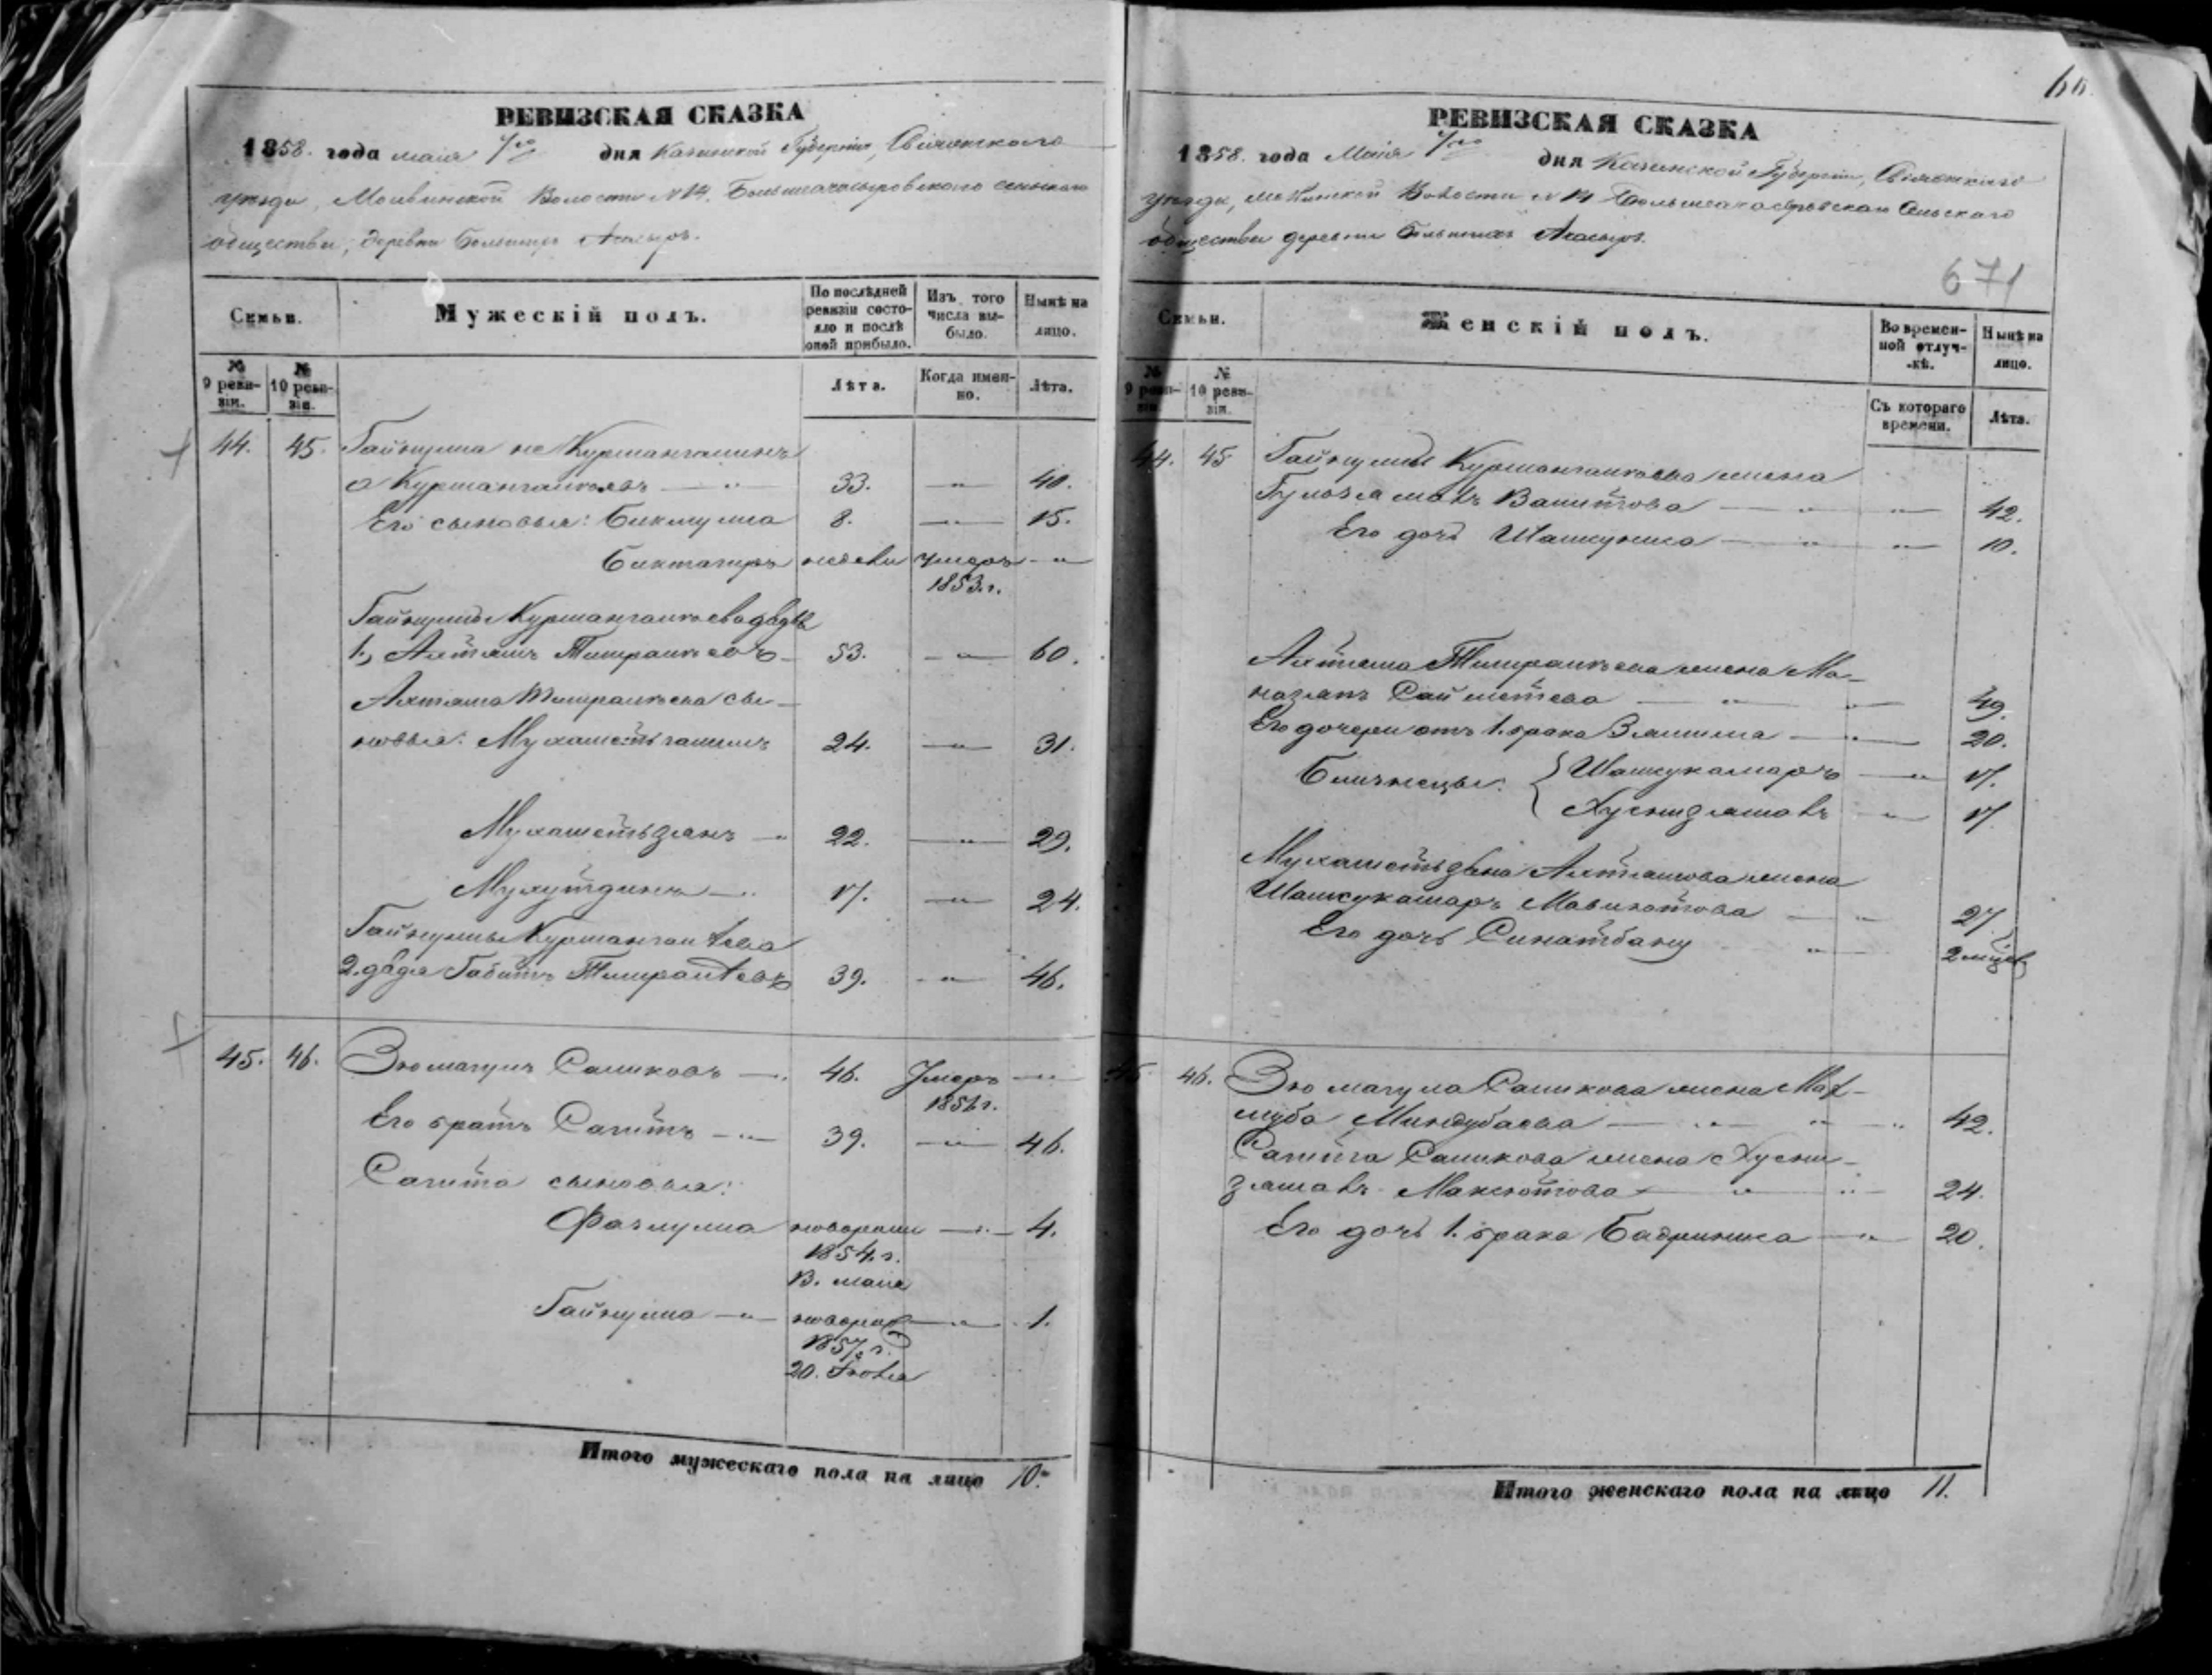 66.
РЕВИЗСКАЯ СКАЗКА
1858. года маія 7го дня Казанской Губерніи, Свіяжскаго
уезда, Молвинской Волости № 14. Большеачасыровскаго сельскаго
общества, деревни Большихъ Ачасыръ.
Семьи.
Мужескій полъ.
По послѣдней ревизіи состояло и послѣ оной прибыло.
Изъ того числа выбыло.
Нынѣ на лицо.
№ 9 ревизіи.
№ 10 ревизіи.
Лѣта.
Когда именно.
Лѣта.
44. 45. Гайнулла не Курмангалинъ
а Курмангалеевъ — " — 33. — " — 40.
Его сыновья: Бикмулла 8. — " — 15.
Биктагиръ недели умеръ — "
1853.г.
Гайнуллы Курмангалеева дядья
1, Ахтямъ Тимралеевъ — 53. — " — 60.
Ахтяма Тимралеева сы-
новья: Мухаметьгалимъ 24. — " — 31.
Мухаметьзянъ — " 22. — " — 29.
Мухутдинъ — " 17. — " — 24.
Гайнуллы Курмангалѣева
2. дядя Габитъ Тимралѣевъ 39. — " — 46.
45. 46. Зюмагулъ Саликовъ — " 46. Умеръ — " —
1856г.
Его братъ Сагитъ — " — 39. — " — 46.
Сагита сыновья:
Фазлулла новорожд — " — 4.
1854.г.
В. маія
Гайнулла — " — новорожд — " — 1.
1857.г.
20. Іюля
Итого мужескаго пола на лицо 10.
РЕВИЗСКАЯ СКАЗКА
1858. года Маія 7го дня Казанской Губерніи, Свіяжскаго
уезда, Молвинской Волости № 14 Большеачасыровскаго Сельскаго
общества деревни Большихъ Ачасыръ.
671
Семьи.
Женскій полъ.
Во временной отлучкѣ.
Нынѣ на лицо.
№ 9 ревизіи.
№ 10 ревизіи.
Съ котораго времени.
Лѣта.
44. 45 Гайнуллы Курмангалеева жена
Гульзямалъ Валитова — " — " — 42.
Его дочь Шамсуниса — " — " — 10.
Ахтяма Тимралеева жена Ма-
Сайметева — " — " — 49.
Его дочери отъ 1. брака Зялила — " — 20.
Близнецы: { Шамсукамаръ — " — 17.
{ Хуснизямалъ — " — 17
Мухаметьзяна Ахтямова жена
Шамсукамаръ Мавлютова — " 27
Его дочь Синатбану " 2 мѣсяц
45 46. Зюмагула Саликова жена Мах-
луба Миндубаева — " — " — " 42.
Сагита Саликова жена Хусни-
зямалъ Максютова — " — " — 24.
Его дочь 1. брака Бадриниса — " — 20.
Итого женскаго пола на лицо 11.